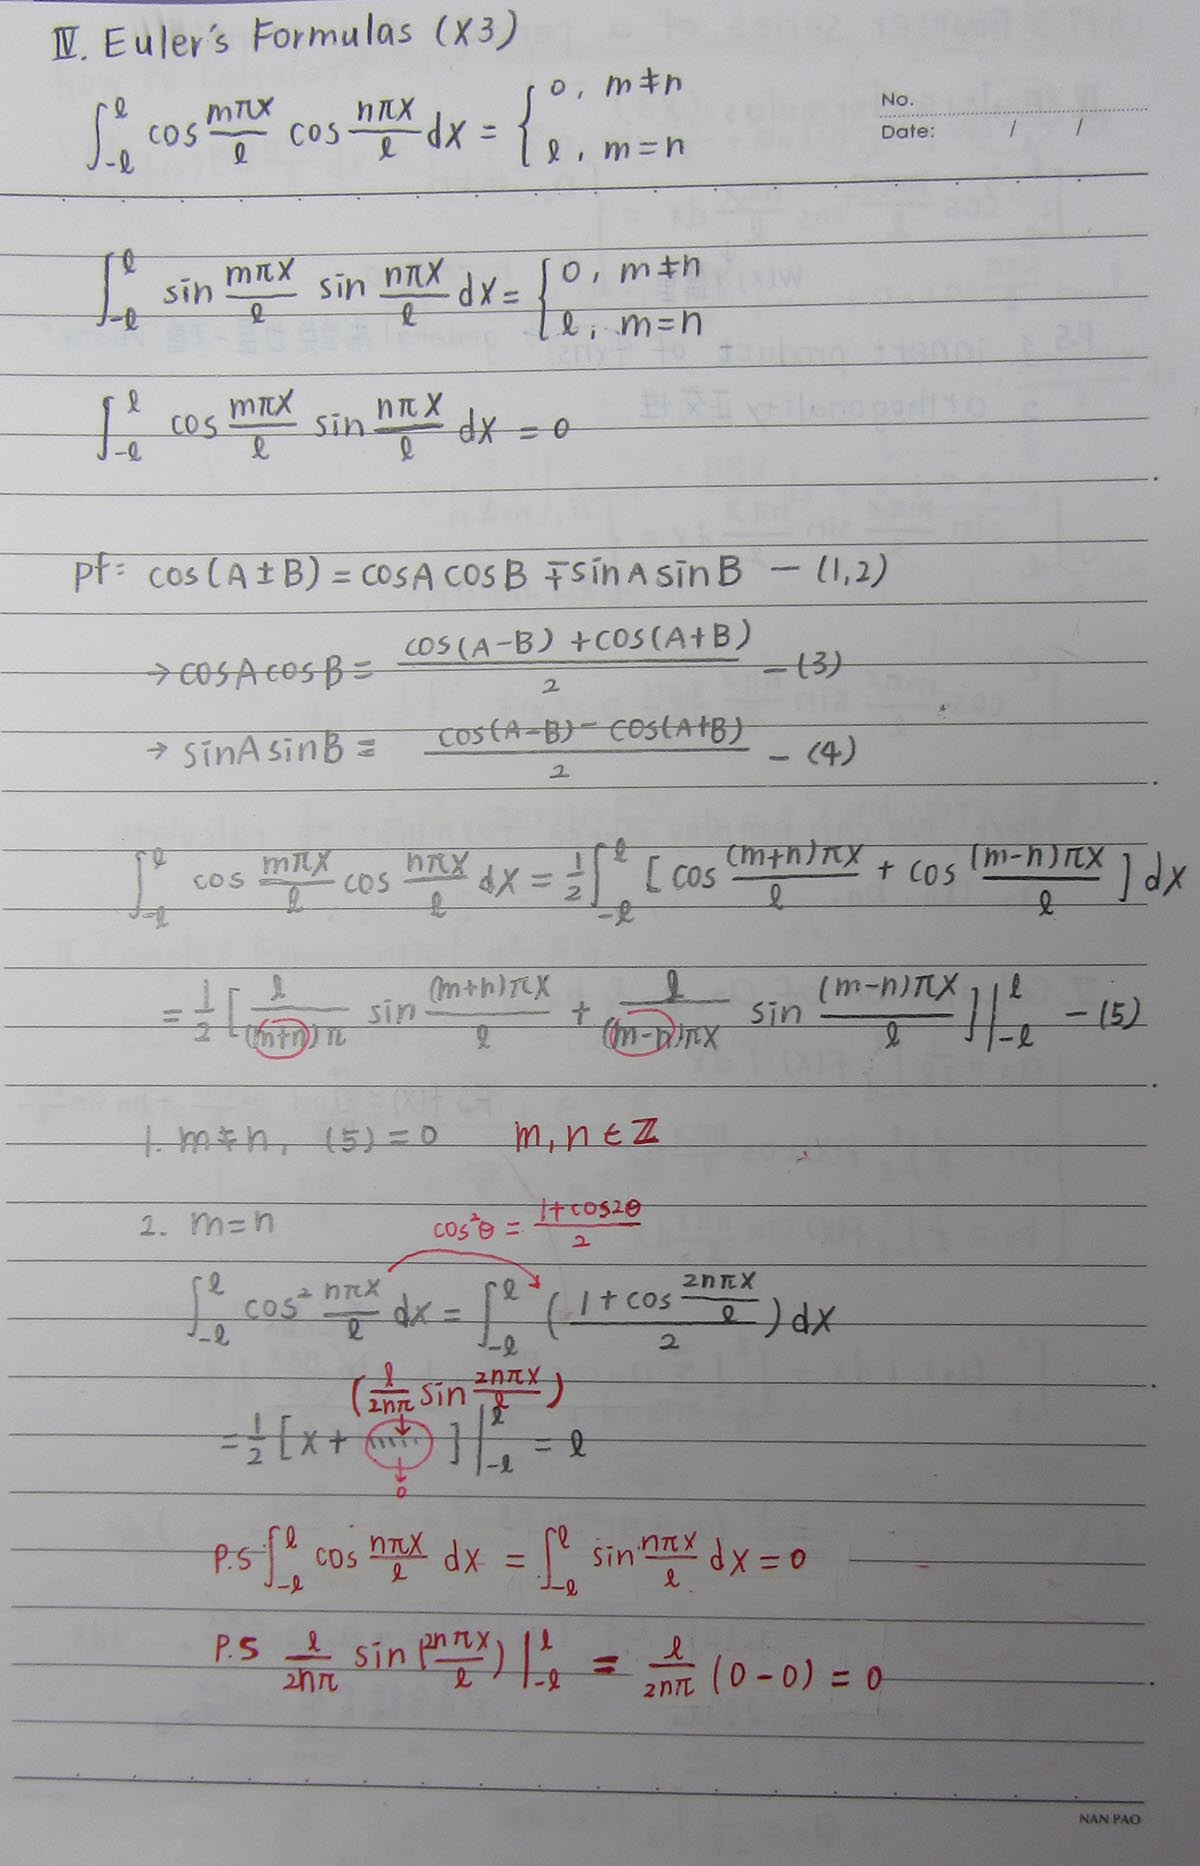 IV. Euler's Formulas (x3)
∫_{-ℓ}^{ℓ} cos mπx/ℓ cos nπx/ℓ dx = { 0, m≠n
ℓ, m=n
No.
Date: / /
∫_{-ℓ}^{ℓ} sin mπx/ℓ sin nπx/ℓ dx = { 0, m≠n
ℓ, m=n
∫_{-ℓ}^{ℓ} cos mπx/ℓ sin nπx/ℓ dx = 0
pf: cos(A±B) = cosA cosB ∓ sinA sinB — (1,2)
→ cosA cosB = (cos(A-B) + cos(A+B))/2 — (3)
→ sinA sinB = (cos(A-B) - cos(A+B))/2 — (4)
∫_{-ℓ}^{ℓ} cos mπx/ℓ cos nπx/ℓ dx = 1/2 ∫_{-ℓ}^{ℓ} [cos (m+n)πx/ℓ + cos (m-n)πx/ℓ] dx
= 1/2 [ℓ/(m+n)π sin (m+n)πx/ℓ + ℓ/(m-n)πx sin (m-n)πx/ℓ]|_{-ℓ}^{ℓ} — (5)
1. m≠n, (5) = 0 m, n ∈ ℤ
2. m=n cos²θ = (1+cos2θ)/2
∫_{-ℓ}^{ℓ} cos² nπx/ℓ dx = ∫_{-ℓ}^{ℓ} ((1+cos 2nπx/ℓ)/2) dx
(ℓ/2nπ sin 2nπx/ℓ)
↓
= 1/2 [x + ......]|_{-ℓ}^{ℓ} = ℓ
↓
0
P.S ∫_{-ℓ}^{ℓ} cos nπx/ℓ dx = ∫_{-ℓ}^{ℓ} sin nπx/ℓ dx = 0
P.S ℓ/2nπ sin(2nπx/ℓ)|_{-ℓ}^{ℓ} = ℓ/2nπ (0-0) = 0
NAN PAO